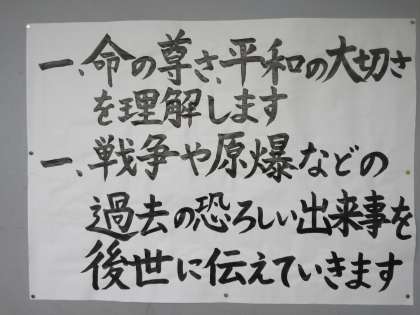 一、命の尊さ、平和の大切さ
を理解します
一、戦争や原爆などの
過去の恐ろしい出来事を
後世に伝えていきます